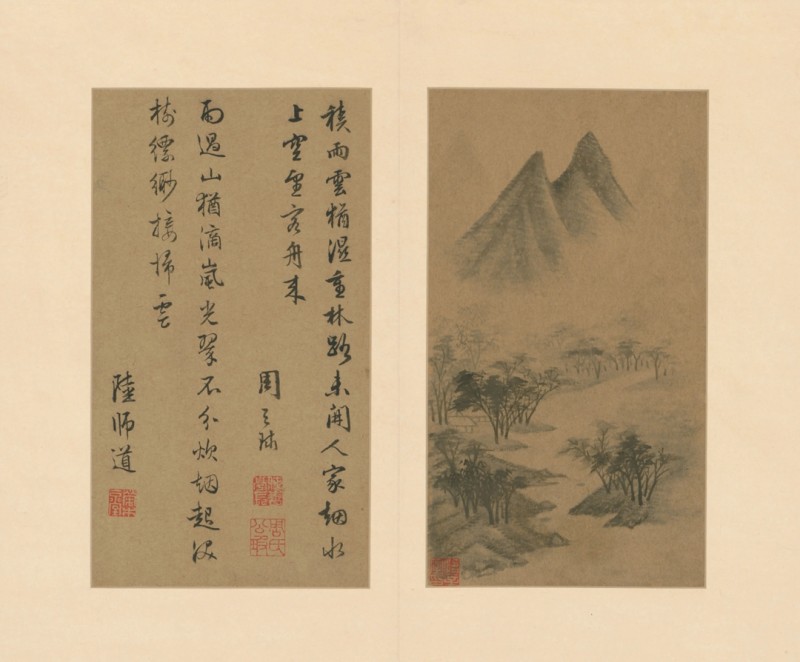 積雨雲猶濕重林路未開人家烟水
上空望客舟来
周之球
周氏公瑕
雨過山猶滴嵐光翠不分炊烟起深
樹縹緲接歸雲
陸師道